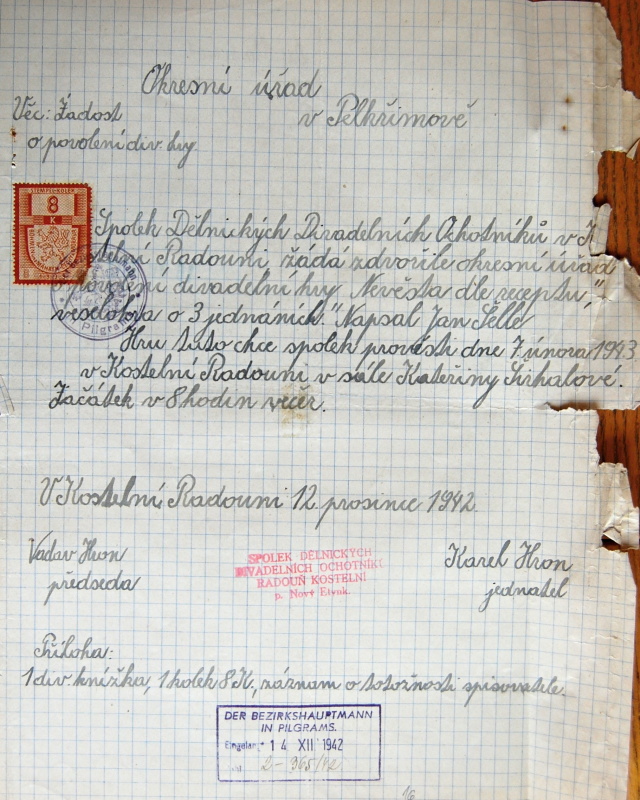 Okresní úřad
Věc: Žádost v Pelhřimově
o povolení div. hry.
STEMPELKOLEK
8
K
Spolek Dělnických Divadelních Ochotníků v K
ostelní Radouni žádá zdvořile okresní úřad
o povolení divadelní hry "Nevěsta dle receptu,"
veselohra o 3 jednáních." Napsal Jan Selle
Pilgram
Hru tuto chce spolek provésti dne 7 února 1943
v Kostelní Radouni v sále Kateřiny Sirhalové.
Začátek v 8 hodin večer.
V Kostelní Radouni 12 prosince 1942.
Václav Hron Karel Hron
předseda jednatel
SPOLEK DĚLNICKÝCH
DIVADELNÍCH OCHOTNÍKŮ
RADOUŇ KOSTELNÍ
p. Nový Etynk.
Příloha:
1 div. knížka, 1 kolek 8 K, záznam o totožnosti spisovatele.
DER BEZIRKSHAUPTMANN
IN PILGRAMS.
Eingelan. 14 XII 1942
2-365/42
16